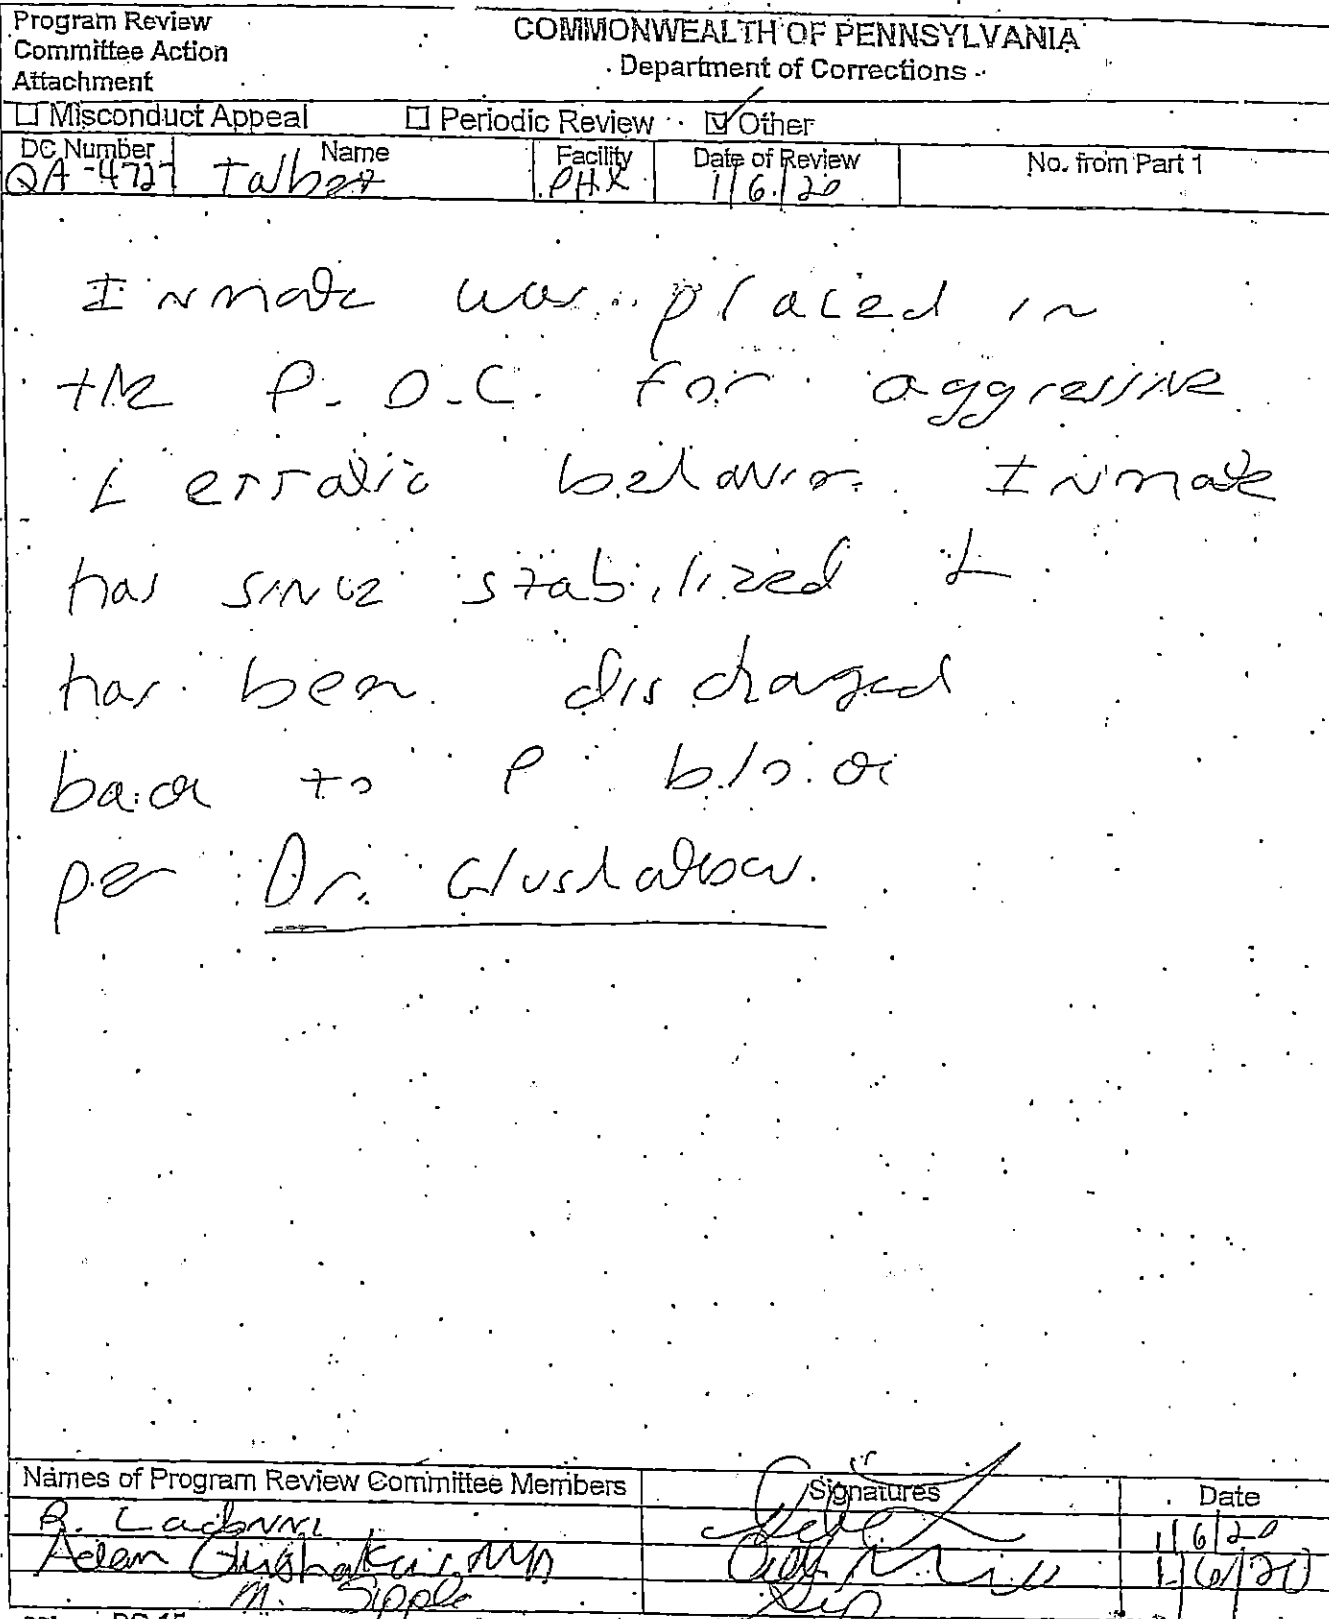 Program Review
Committee Action
Attachment
COMMONWEALTH OF PENNSYLVANIA
Department of Corrections
☐ Misconduct Appeal ☐ Periodic Review ☑ Other
DC Number Name Facility Date of Review No. from Part 1
QA-4727 Talbert PHX 1/6/20
Inmate was placed in
the P.O.C. for aggressive
& erratic behavior. Inmate
has since stabilized &
has been discharged
back to P block
per Dr.
Names of Program Review Committee Members Signatures Date
R. Ladonni 1/6/20
Adam MD 1/6/20
M. Sipple